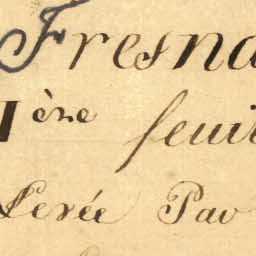 Fresna
1ère feuil
Levée Par